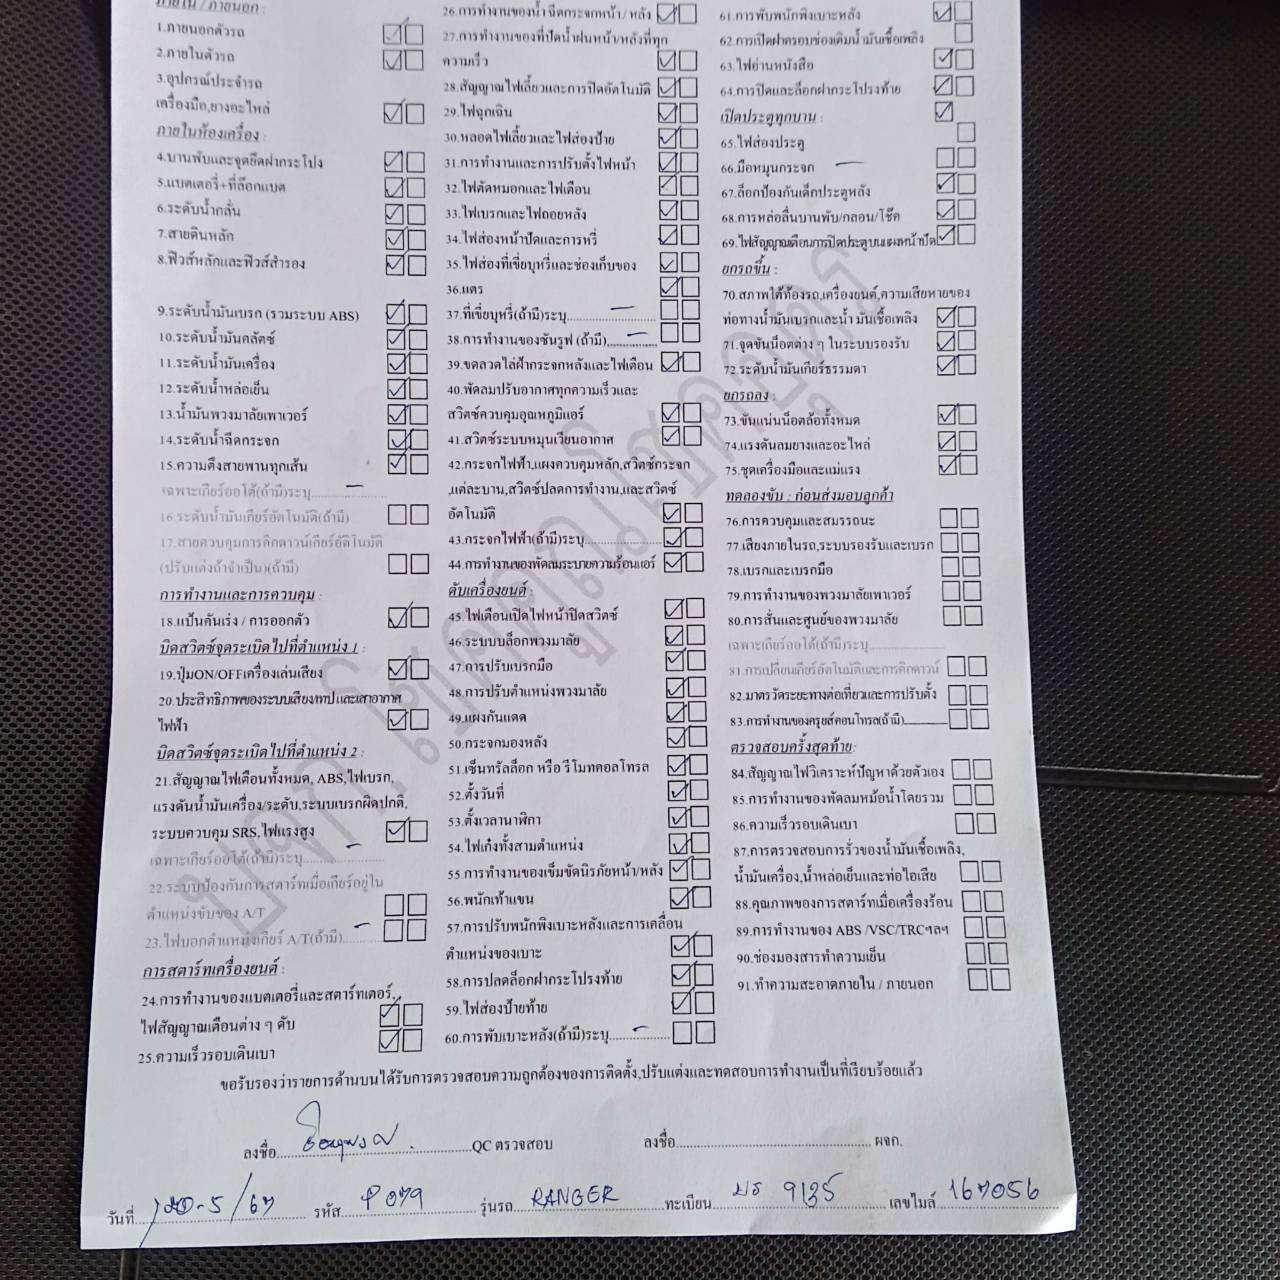 ภายใน / ภายนอก :
1.ภายนอกตัวรถ
2.ภายในตัวรถ
3.อุปกรณ์ประจำรถ
เครื่องมือ,ยางอะไหล่
ภายในห้องเครื่อง :
4.บานพับและจุดยึดฝากระโปรง
5.แบตเตอรี่+ที่ล๊อกแบต
6.ระดับน้ำกลั่น
7.สายดินหลัก
8.ฟิวส์หลักและฟิวส์สำรอง
9.ระดับน้ำมันเบรก (รวมระบบ ABS)
10.ระดับน้ำมันคลัตช์
11.ระดับน้ำมันเครื่อง
12.ระดับน้ำหล่อเย็น
13.น้ำมันพวงมาลัยเพาเวอร์
14.ระดับน้ำฉีดกระจก
15.ความตึงสายพานทุกเส้น
เฉพาะเกียร์ออโต้(ถ้ามี)ระบุ
16.ระดับน้ำมันเกียร์อัตโนมัติ(ถ้ามี)
17.สายควบคุมการคิกดาวน์เกียร์อัติโนมัติ
(ปรับแต่งถ้าจำเป็น)(ถ้ามี)
การทำงานและการควบคุม :
18.แป้นคันเร่ง / การออกตัว
บิดสวิตซ์จุดระเบิดไปที่ตำแหน่ง 1 :
19.ปุ่มON/OFFเครื่องเล่นเสียง
20.ประสิทธิภาพของระบบเสียงเทป และเสาอากาศ
ไฟฟ้า
บิดสวิตซ์จุดระเบิดไปที่ตำแหน่ง 2 :
21.สัญญาณไฟเตือนทั้งหมด, ABS,ไฟเบรก,
แรงดันน้ำมันเครื่อง/ระดับ,ระบบเบรกผิดปกติ,
ระบบควบคุม SRS,ไฟแรงสูง
เฉพาะเกียร์ออโต้(ถ้ามี)ระบุ
22.ระบบป้องกันการสตาร์ทเมื่อเกียร์อยู่ใน
ตำแหน่งขับของ A/T
23.ไฟบอกตำแหน่งเกียร์ A/T(ถ้ามี)
การสตาร์ทเครื่องยนต์ :
24.การทำงานของแบตเตอรี่และสตาร์ทเตอร์,
ไฟสัญญาณเตือนต่าง ๆ ดับ
25.ความเร็วรอบเดินเบา
26.การทำงานของน้ำฉีดกระจกหน้า / หลัง
27.การทำงานของที่ปัดน้ำฝนหน้า/หลังที่ทุก
ความเร็ว
28.สัญญาณไฟเลี้ยวและการปิดอัตโนมัติ
29.ไฟฉุกเฉิน
30.หลอดไฟเลี้ยวและไฟส่องป้าย
31.การทำงานและการปรับตั้งไฟหน้า
32.ไฟตัดหมอกและไฟเตือน
33.ไฟเบรกและไฟถอยหลัง
34.ไฟส่องหน้าปัดและการหรี่
35.ไฟส่องที่เขี่ยบุหรี่และช่องเก็บของ
36.แตร
37.ที่เขี่ยบุหรี่(ถ้ามี)ระบุ
38.การทำงานของซันรูฟ (ถ้ามี)
39.ขดลวดไล่ฝ้ากระจกหลังและไฟเตือน
40.พัดลมปรับอากาศทุกความเร็วและ
สวิตซ์ควบคุมอุณหภูมิแอร์
41.สวิตซ์ระบบหมุนเวียนอากาศ
42.กระจกไฟฟ้า,แผงควบคุมหลัก,สวิตซ์กระจก
,แต่ละบาน,สวิตซ์ปลดการทำงาน,และสวิตซ์
อัตโนมัติ
43.กระจกไฟฟ้า(ถ้ามี)ระบุ
44.การทำงานของพัดลมระบายความร้อนแอร์
ดับเครื่องยนต์ :
45.ไฟเตือนเปิดไฟหน้าปิดสวิตซ์
46.ระบบบล็อกพวงมาลัย
47.การปรับเบรกมือ
48.การปรับตำแหน่งพวงมาลัย
49.แผงกันแดด
50.กระจกมองหลัง
51.เซ็นทรัลล็อก หรือ รีโมทคอลโทรล
52.ตั้งวันที่
53.ตั้งเวลานาฬิกา
54.ไฟเก๋งทั้งสามตำแหน่ง
55.การทำงานของเข็มขัดนิรภัยหน้า/หลัง
56.พนักเท้าแขน
57.การปรับพนักพิงเบาะหลังและการเคลื่อน
ตำแหน่งของเบาะ
58.การปลดล็อกฝากระโปรงท้าย
59.ไฟส่องป้ายท้าย
60.การพับเบาะหลัง(ถ้ามี)ระบุ
61.การพับพนักพิงเบาะหลัง
62.การเปิดฝาครอบช่องเติมน้ำมันเชื้อเพลิง
63.ไฟอ่านหนังสือ
64.การปิดและล็อกฝากระโปรงท้าย
เปิดประตูทุกบาน :
65.ไฟส่องประตู
66.มือหมุนกระจก
67.ล็อกป้องกันเด็กประตูหลัง
68.การหล่อลื่นบานพับ/กลอน/โช๊ค
69.ไฟสัญญาณเตือนการปิดประตูบนแผงหน้าปัด
ยกรถขึ้น :
70.สภาพใต้ท้องรถ,เครื่องยนต์,ความเสียหายของ
ท่อทางน้ำมันเบรกและน้ำมันเชื้อเพลิง
71.จุดขันน็อตต่าง ๆ ในระบบรองรับ
72.ระดับน้ำมันเกียร์ธรรมดา
ยกรถลง :
73.ขันแน่นน็อตล้อทั้งหมด
74.แรงดันลมยางและอะไหล่
75.ชุดเครื่องมือและแม่แรง
ทดลองขับ : ก่อนส่งมอบลูกค้า
76.การควบคุมและสมรรถนะ
77.เสียงภายในรถ,ระบบรองรับและเบรก
78.เบรกและเบรกมือ
79.การทำงานของพวงมาลัยเพาเวอร์
80.การสั่นและศูนย์ของพวงมาลัย
เฉพาะเกียร์ออโต้(ถ้ามี)ระบุ
81.การเปลี่ยนเกียร์อัตโนมัติและการคิกดาวน์
82.มาตรวัดระยะทางต่อเที่ยวและการปรับตั้ง
83.การทำงานของครุยส์คอนโทรล(ถ้ามี)
ตรวจสอบครั้งสุดท้าย:
84.สัญญาณไฟวิเคราะห์ปัญหาด้วยตัวเอง
85.การทำงานของพัดลมหม้อน้ำโดยรวม
86.ความเร็วรอบเดินเบา
87.การตรวจสอบการรั่วของน้ำมันเชื้อเพลิง,
น้ำมันเครื่อง,น้ำหล่อเย็นและท่อไอเสีย
88.คุณภาพของการสตาร์ทเมื่อเครื่องร้อน
89.การทำงานของ ABS /VSC/TRCฯลฯ
90.ช่องมองสารทำความเย็น
91.ทำความสะอาดภายใน / ภายนอก
ขอรับรองว่ารายการด้านบนได้รับการตรวจสอบความถูกต้องของการติดตั้ง,ปรับแต่งและทดสอบการทำงานเป็นที่เรียบร้อยแล้ว
ลงชื่อ QC ตรวจสอบ ลงชื่อ ผจก.
วันที่ -5/67 รหัส P079 รุ่นรถ RANGER ทะเบียน 9135 เลขไมล์ 167056